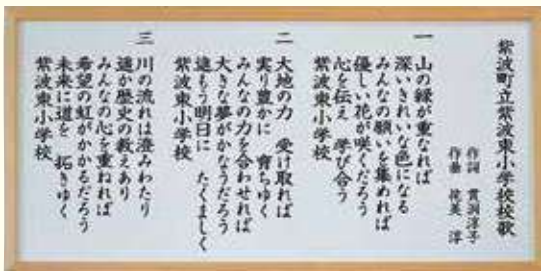 紫波町立紫波東小学校校歌
作詞
作曲
一
山の緑が重なれば
深いきれいな色になる
みんなの願いを集めれば
優しい花が咲くだろう
心を伝え 学び合う
紫波東小学校
二
大地の力 受け取れば
実り豊かに 育ちゆく
みんなの力を合わせれば
大きな夢がかなうだろう
進もう明日に たくましく
紫波東小学校
三
川の流れは澄みわたり
遠か歴史の教えあり
みんなの心を重ねれば
希望の虹がかかるだろう
未来に道を 拓きゆく
紫波東小学校